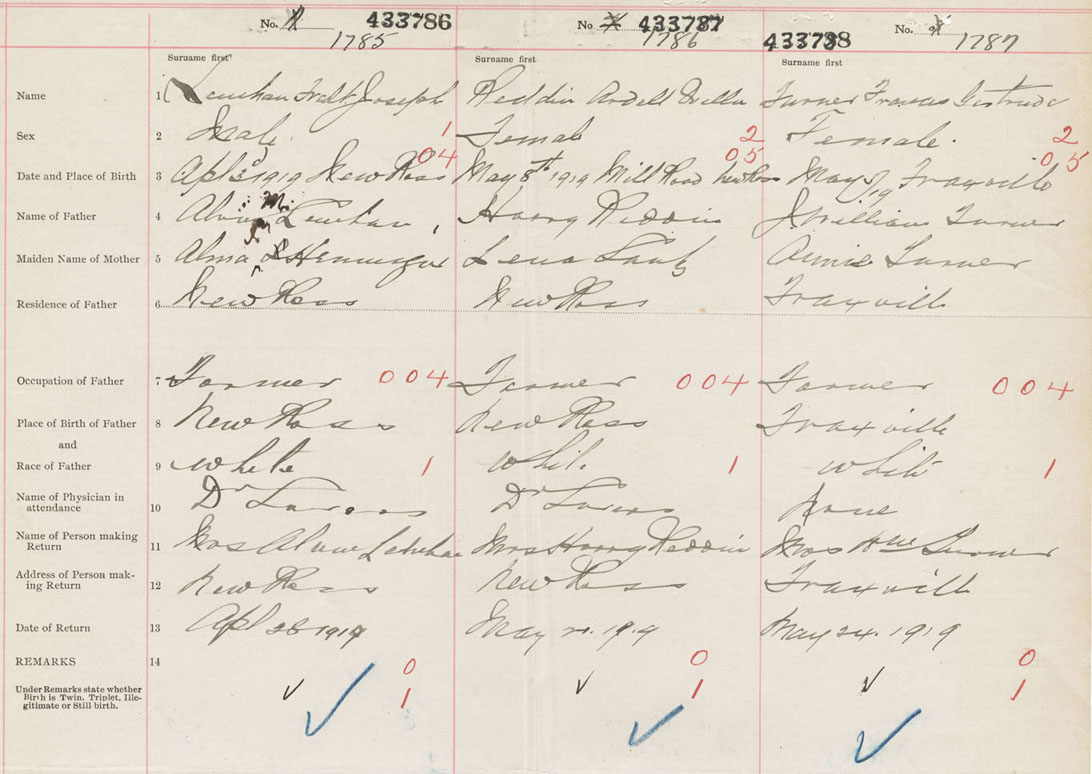 No. 433786 No 433787 433788 No.
1785 1786 1787
Surname first Surname first Surname first
Name 1 Joseph Reddin Ardell Turner Frances Gertrude
Sex 2 Male. 1 Female 2 Female. 2
04 05 05
Date and Place of Birth 3 Apl 3d 1919 New Ross May 8th 1919 Mill Road New Ross May 19 Fraxville
Name of Father 4 Lenihan Harry Reddin J William Turner
Maiden Name of Mother 5 Alma Lena Annie Turner
Residence of Father 6 New Ross New Ross Fraxville
Occupation of Father 7 Farmer 004 Farmer 004 Farmer 004
Place of Birth of Father 8 New Ross New Ross Fraxville
and
Race of Father 9 White 1 White 1 White 1
Name of Physician in
attendance 10 Dr Dr None
Name of Person making
Return 11 Mrs Lenihan Mrs Harry Reddin Mrs Wm Turner
Address of Person mak-
ing Return 12 New Ross New Ross Fraxville
Date of Return 13 Apl 28 1919 May 21. 1919 May 24. 1919
REMARKS 14 0 0 0
Under Remarks state whether
Birth is Twin, Triplet, Ille-
gitimate or Still birth. 1 1 1